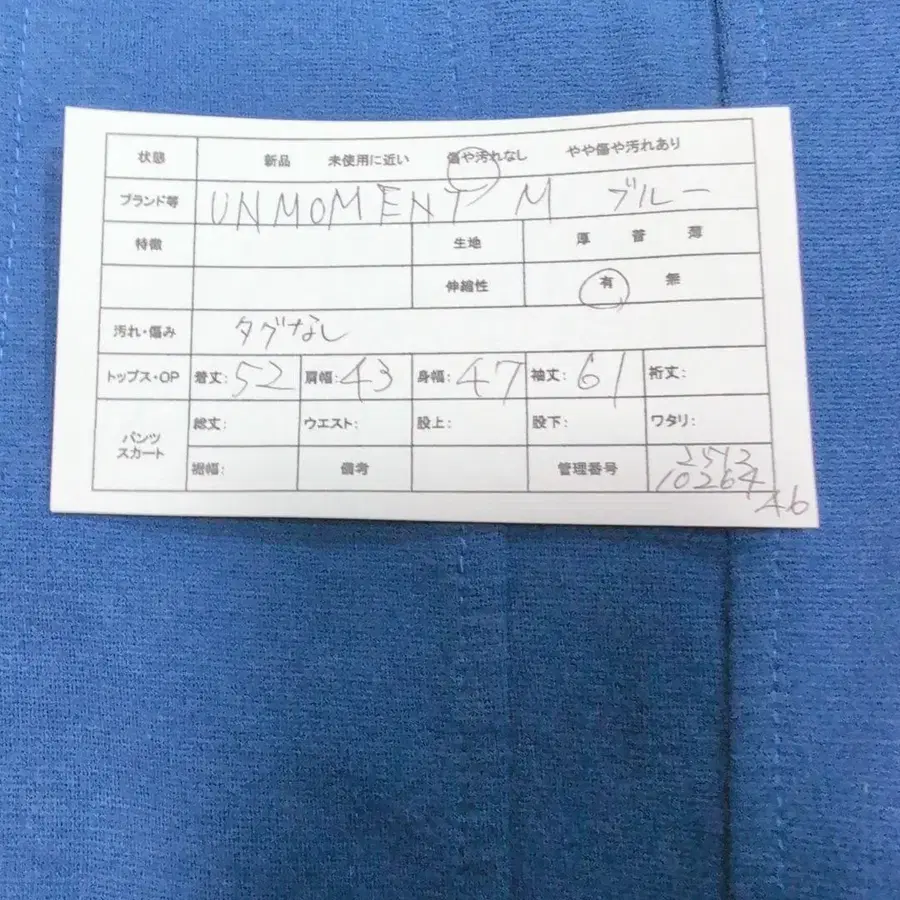 状態 新品 未使用に近い 傷や汚れなし やや傷や汚れあり
ブランド等 UNMOMENT M ブルー
特徴 生地 厚 普 薄
伸縮性 有 無
汚れ・傷み タグなし
トップス・OP 着丈:52 肩幅:43 身幅:47 袖丈:61 裄丈:
パンツ 総丈: ウエスト: 股上: 股下: ワタリ:
スカート
裾幅: 備考 管理番号 2512
10264
A6